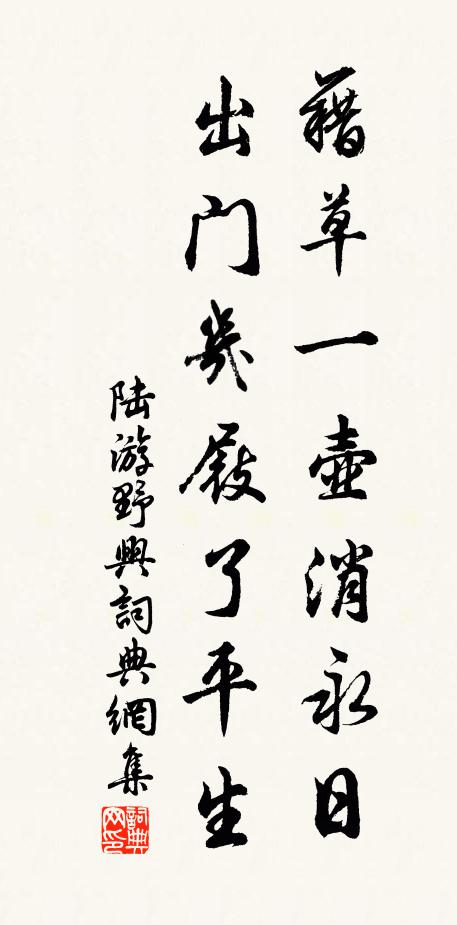 藉草一壺消永日
出門幾屐了平生
陸游野興詞典網集
詞典网印